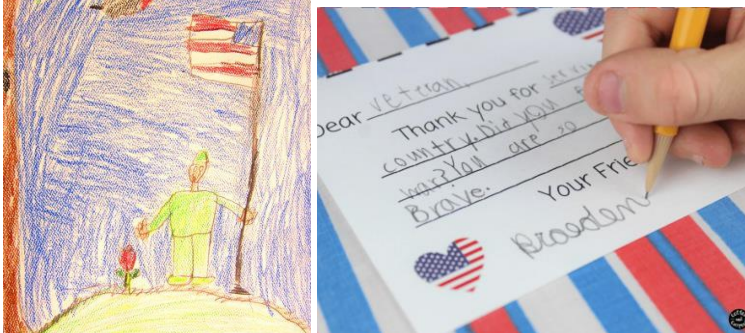 Dear veteran,
Thank you for
country. Did you
war? You are so
Brave.
Your Frie
Braeden